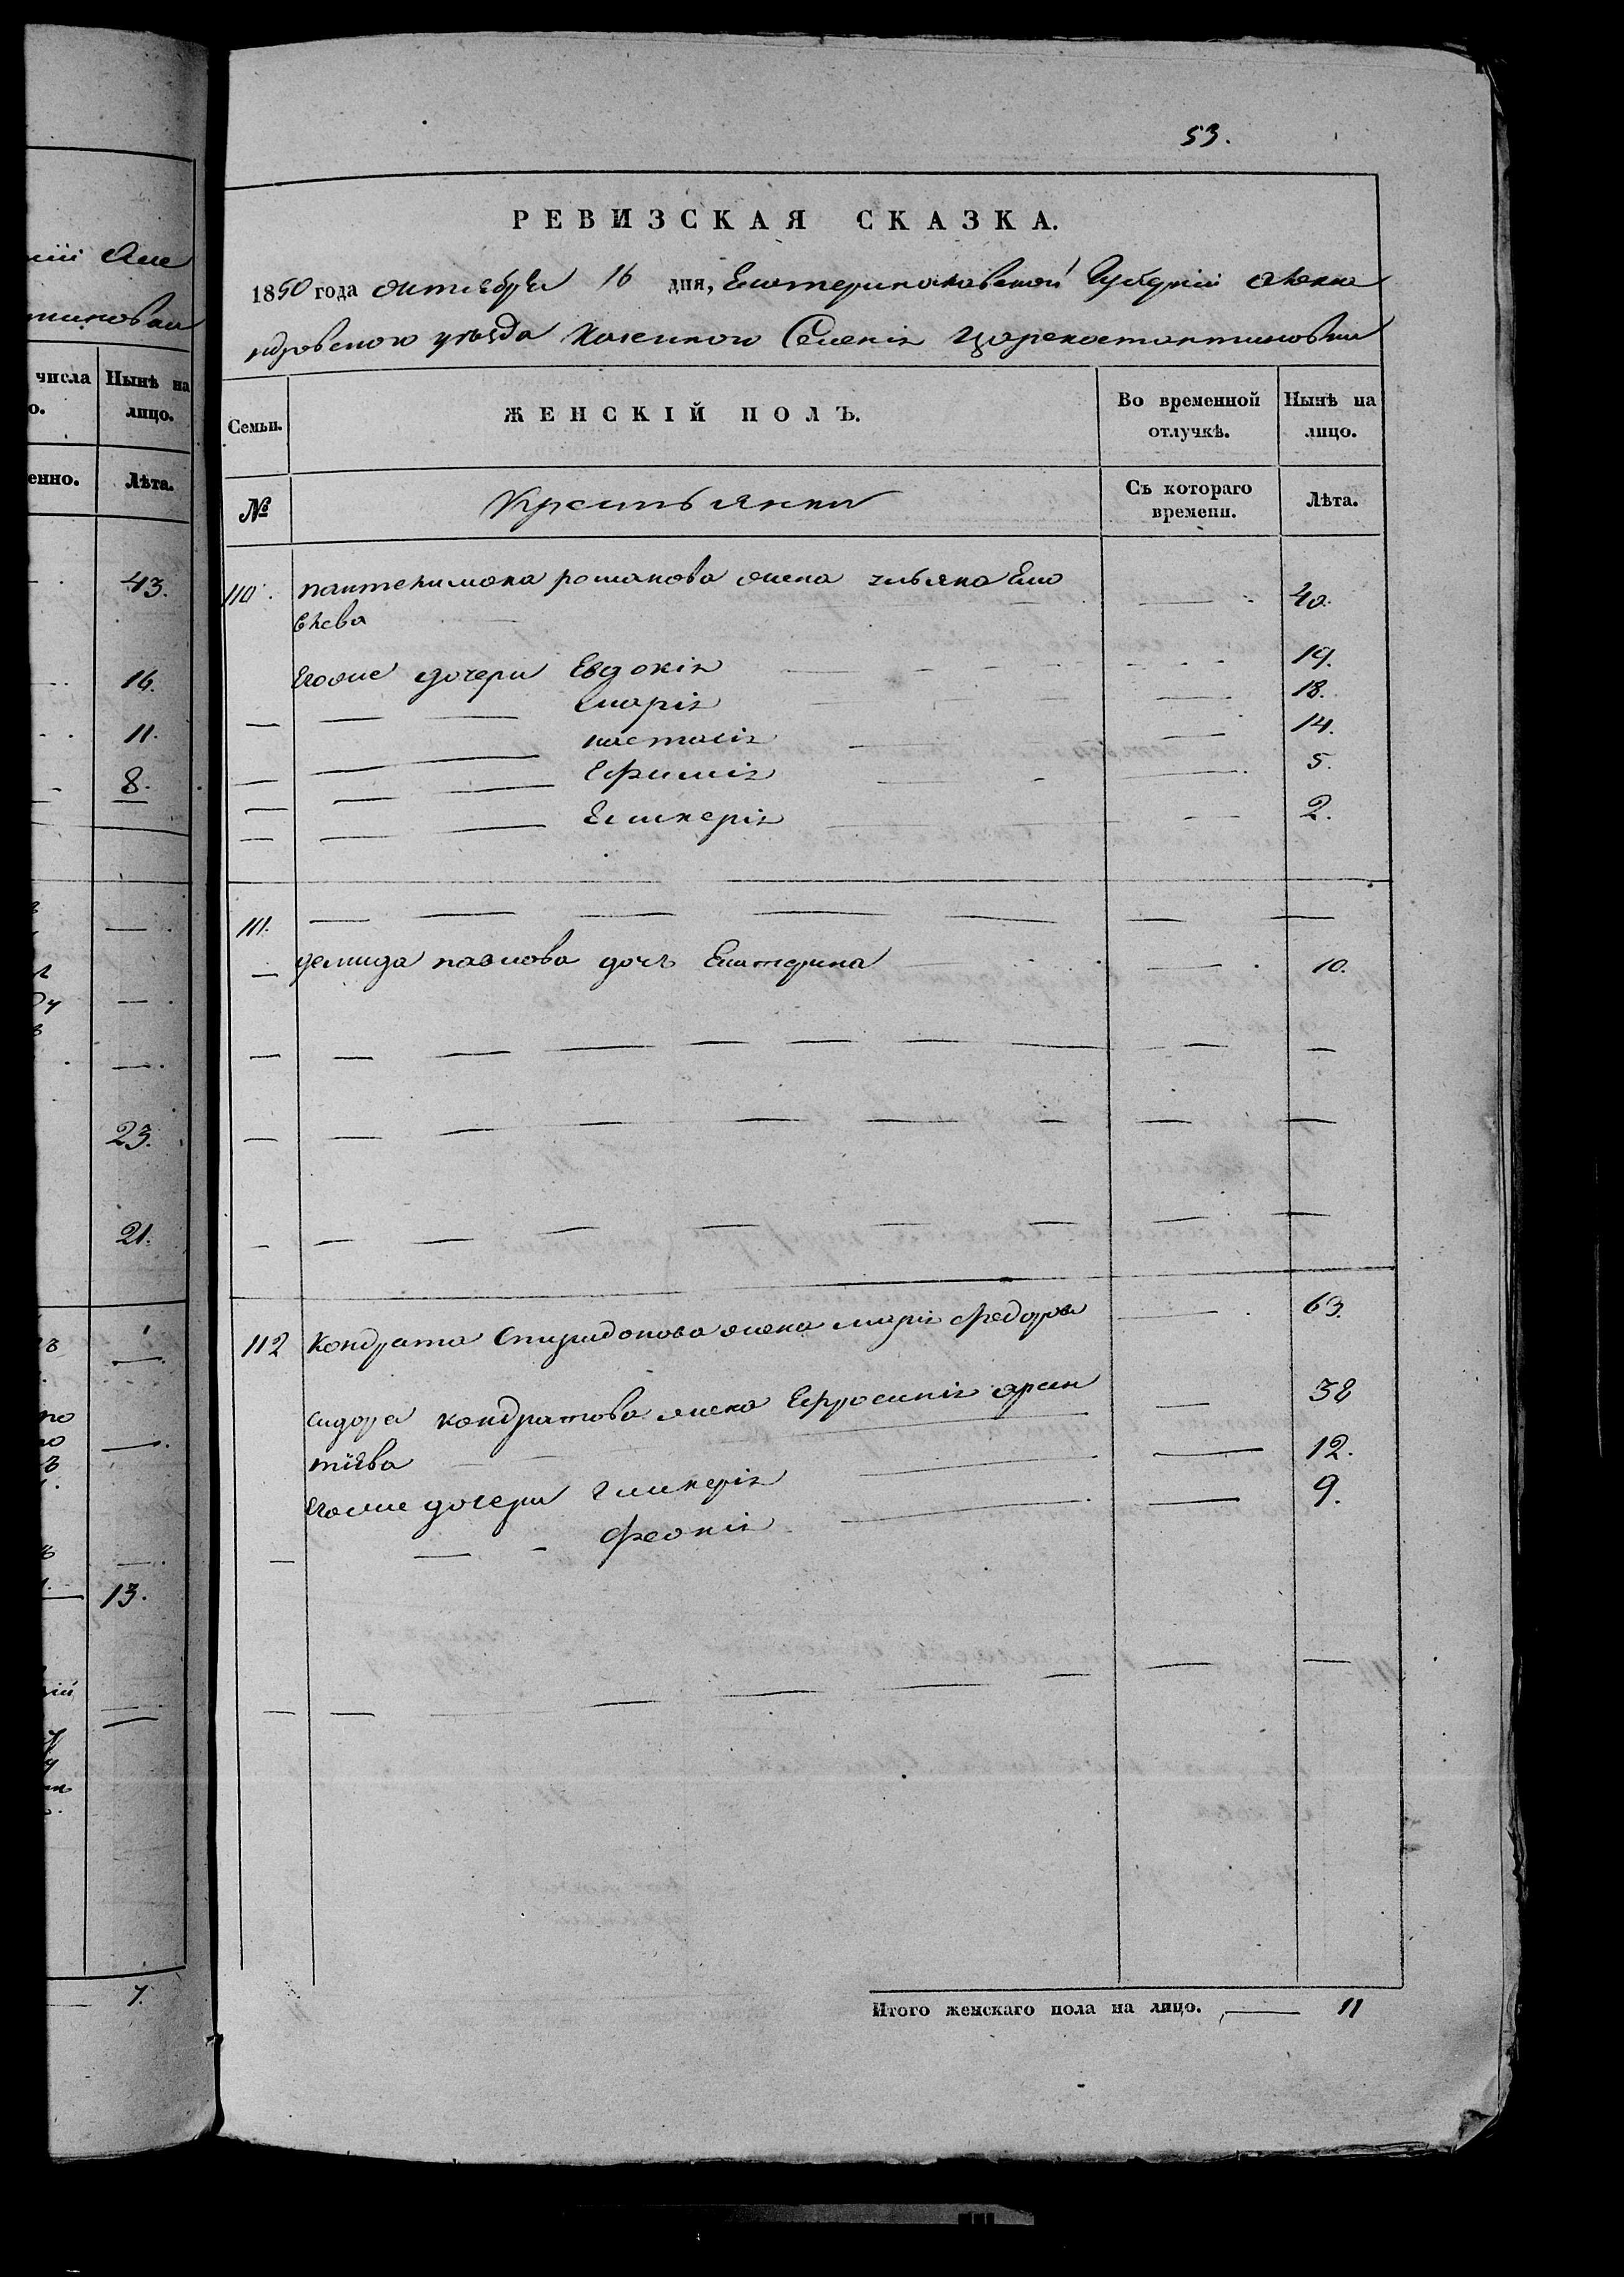 53.
РЕВИЗСКАЯ СКАЗКА.
1850 года октября 16 дня, Екатеринославской Губерніи Алекса
ндровского уѣзда Казенного Селенія Цареконстантиновки
Семьи.
ЖЕНСКІЙ ПОЛЪ.
Во временной отлучкѣ.
Нынѣ на лицо.
№
Крестьянки
Съ котораго времени.
Лѣта.
110. пантелимона романова жена ульяна 40.
Егоже дочери Евдокія 19.
марія 18.
настасія 14.
Ефимія 5.
2.
111.
демида павлова дочь Екатерина 10.
112 Кондрата Спиридонова жена марія федорова 63.
сидора кондратова жена Ефросинія арсен 38
тіева
Егоже дочери гликерія 12.
феонія 9.
Итого женскаго пола на лицо. 11
числа
Нынѣ на лицо.
енно.
Лѣта.
43.
16.
11.
8.
23.
21.
13.
7.